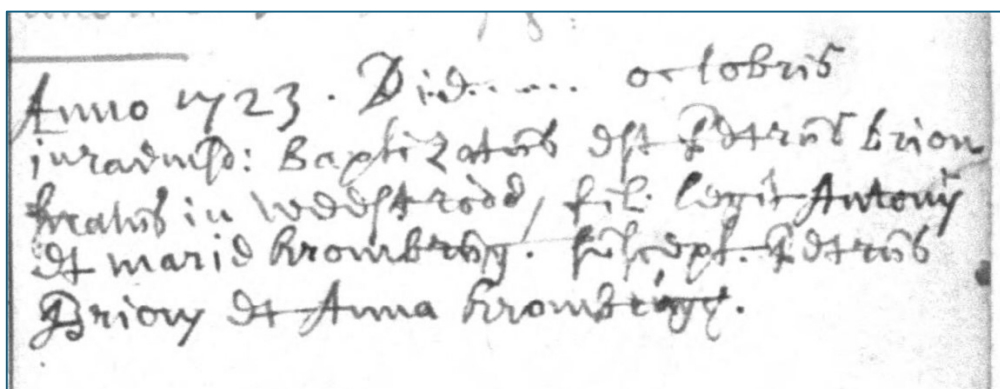 Anno 1723. Die ...... octobris
Baptizatus est Petrus brion
natus in weestrode, fil. legit Antonij
et marie krombrug. suscept. Petrus
Briony et Anna krombrugge.